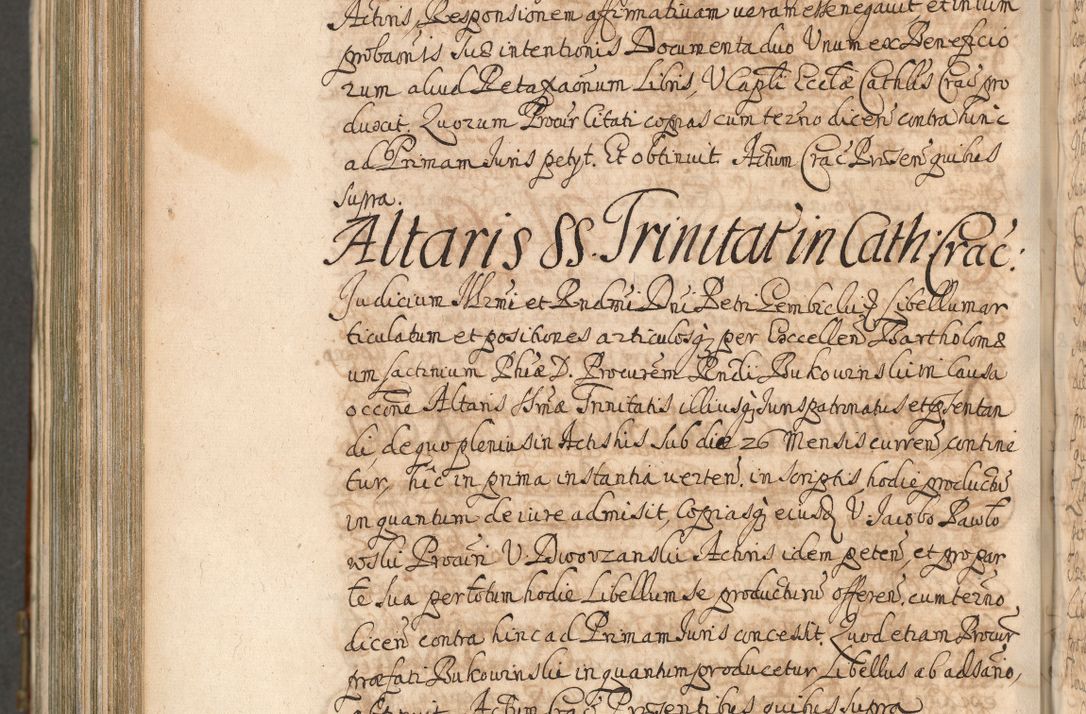 Actoris, Responsionem affirmativam veram esse negavit et in eum
probaõnis suæ intentionis Documenta duo Unum ex Beneficio
rum aliud Retaxaõnum Libris, V Capli Eccłæ Cathłis Crac̃ pro
duxit. Quorum Procur̃ Citati copias cum termo dicen̄ contra hinc
ad Primam Juris petyt. Et obtinuit. Actum Crac̃ Præsen̄ quibus
supra.
Altaris SS. Trinitat̃ in Cath: Crac̃:
Judicium Illrmi et Rndmi Dni Petri Gembicki Libellum ar
ticulatum et positiones articulosq; per Excellen̄ Bartholomæ
um Phiæ D. Procurẽm Rndi Bukowinski in Causa
occõne Altaris SSmæ Trinitatis illiusq; Jurispatronatus et præsentan
di, de quo plenius in Actis his sub die 26 Mensis curren̄ contine
tur, hic in prima instantia verten̄. in scriptis, hodie productũ
in quantum de iure admisit, Copiasq; eiusd V. Jacobo Pawło
wski Procur̃i V. Dworzanski Actoris idem peten̄, et pro par
te sua per totum hodie Libellum se producturũ offeren̄, cum termo
dicen̄ contra hinc ad Primam Juris concessit. Quod etiam Procur̃
præfati Bukowinski in quantum producetur Libellus ab adsario,
obtinuit. Actum Crac̃ Præsentibus quibus supra